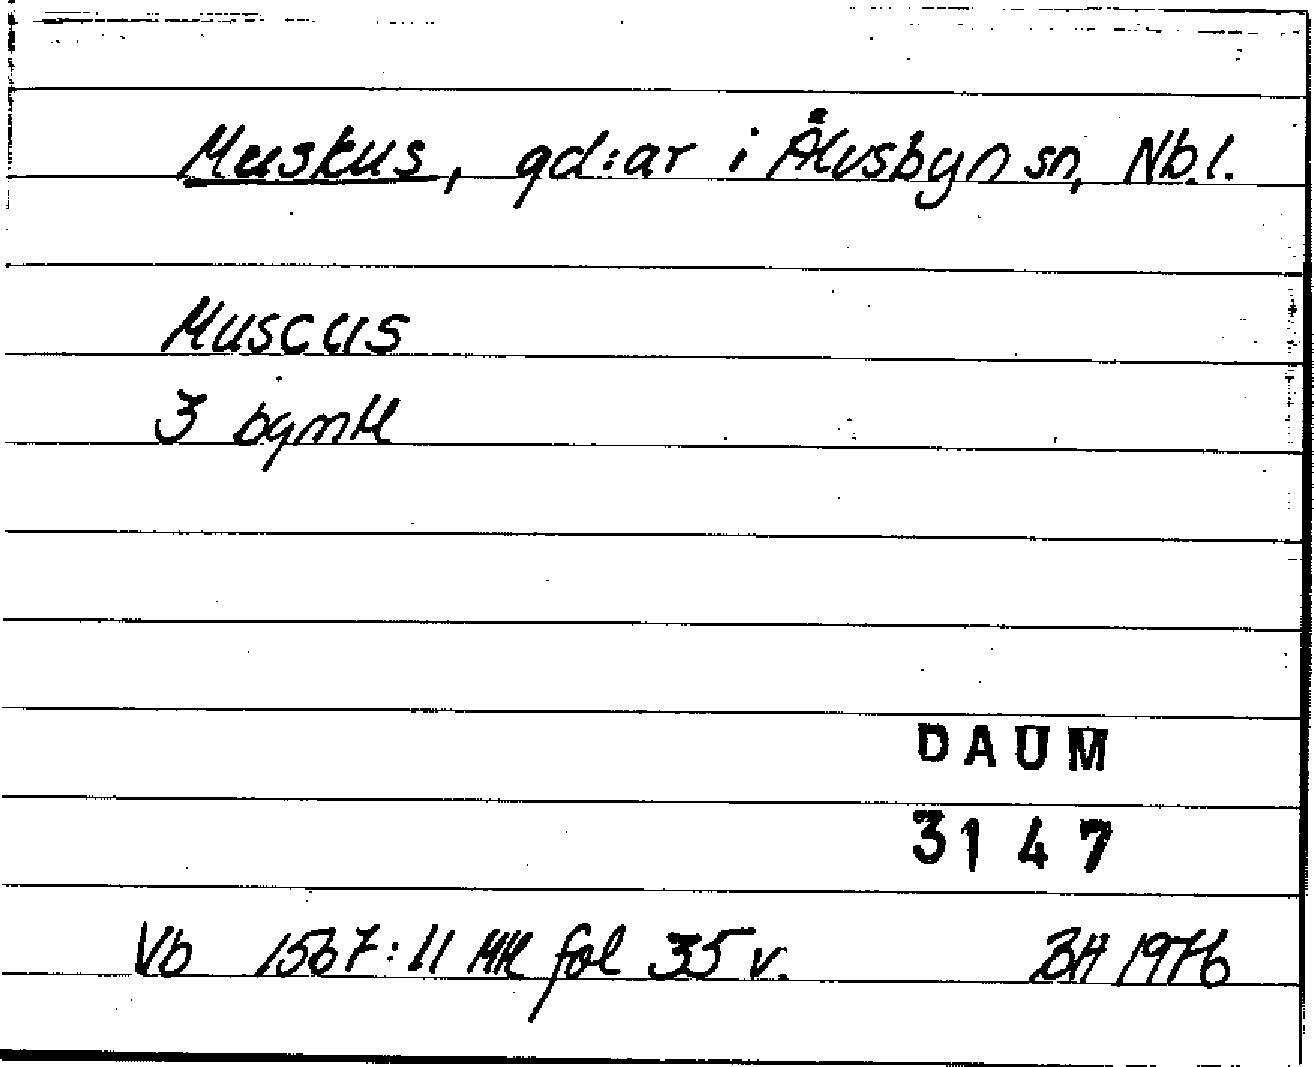 Muskus, gd:ar i Älvsbyn sn, Nb.l.
Muscus
3 bgmtl
DAUM
3147
Vb 1567:11 MH fol 35 v. BH 1976